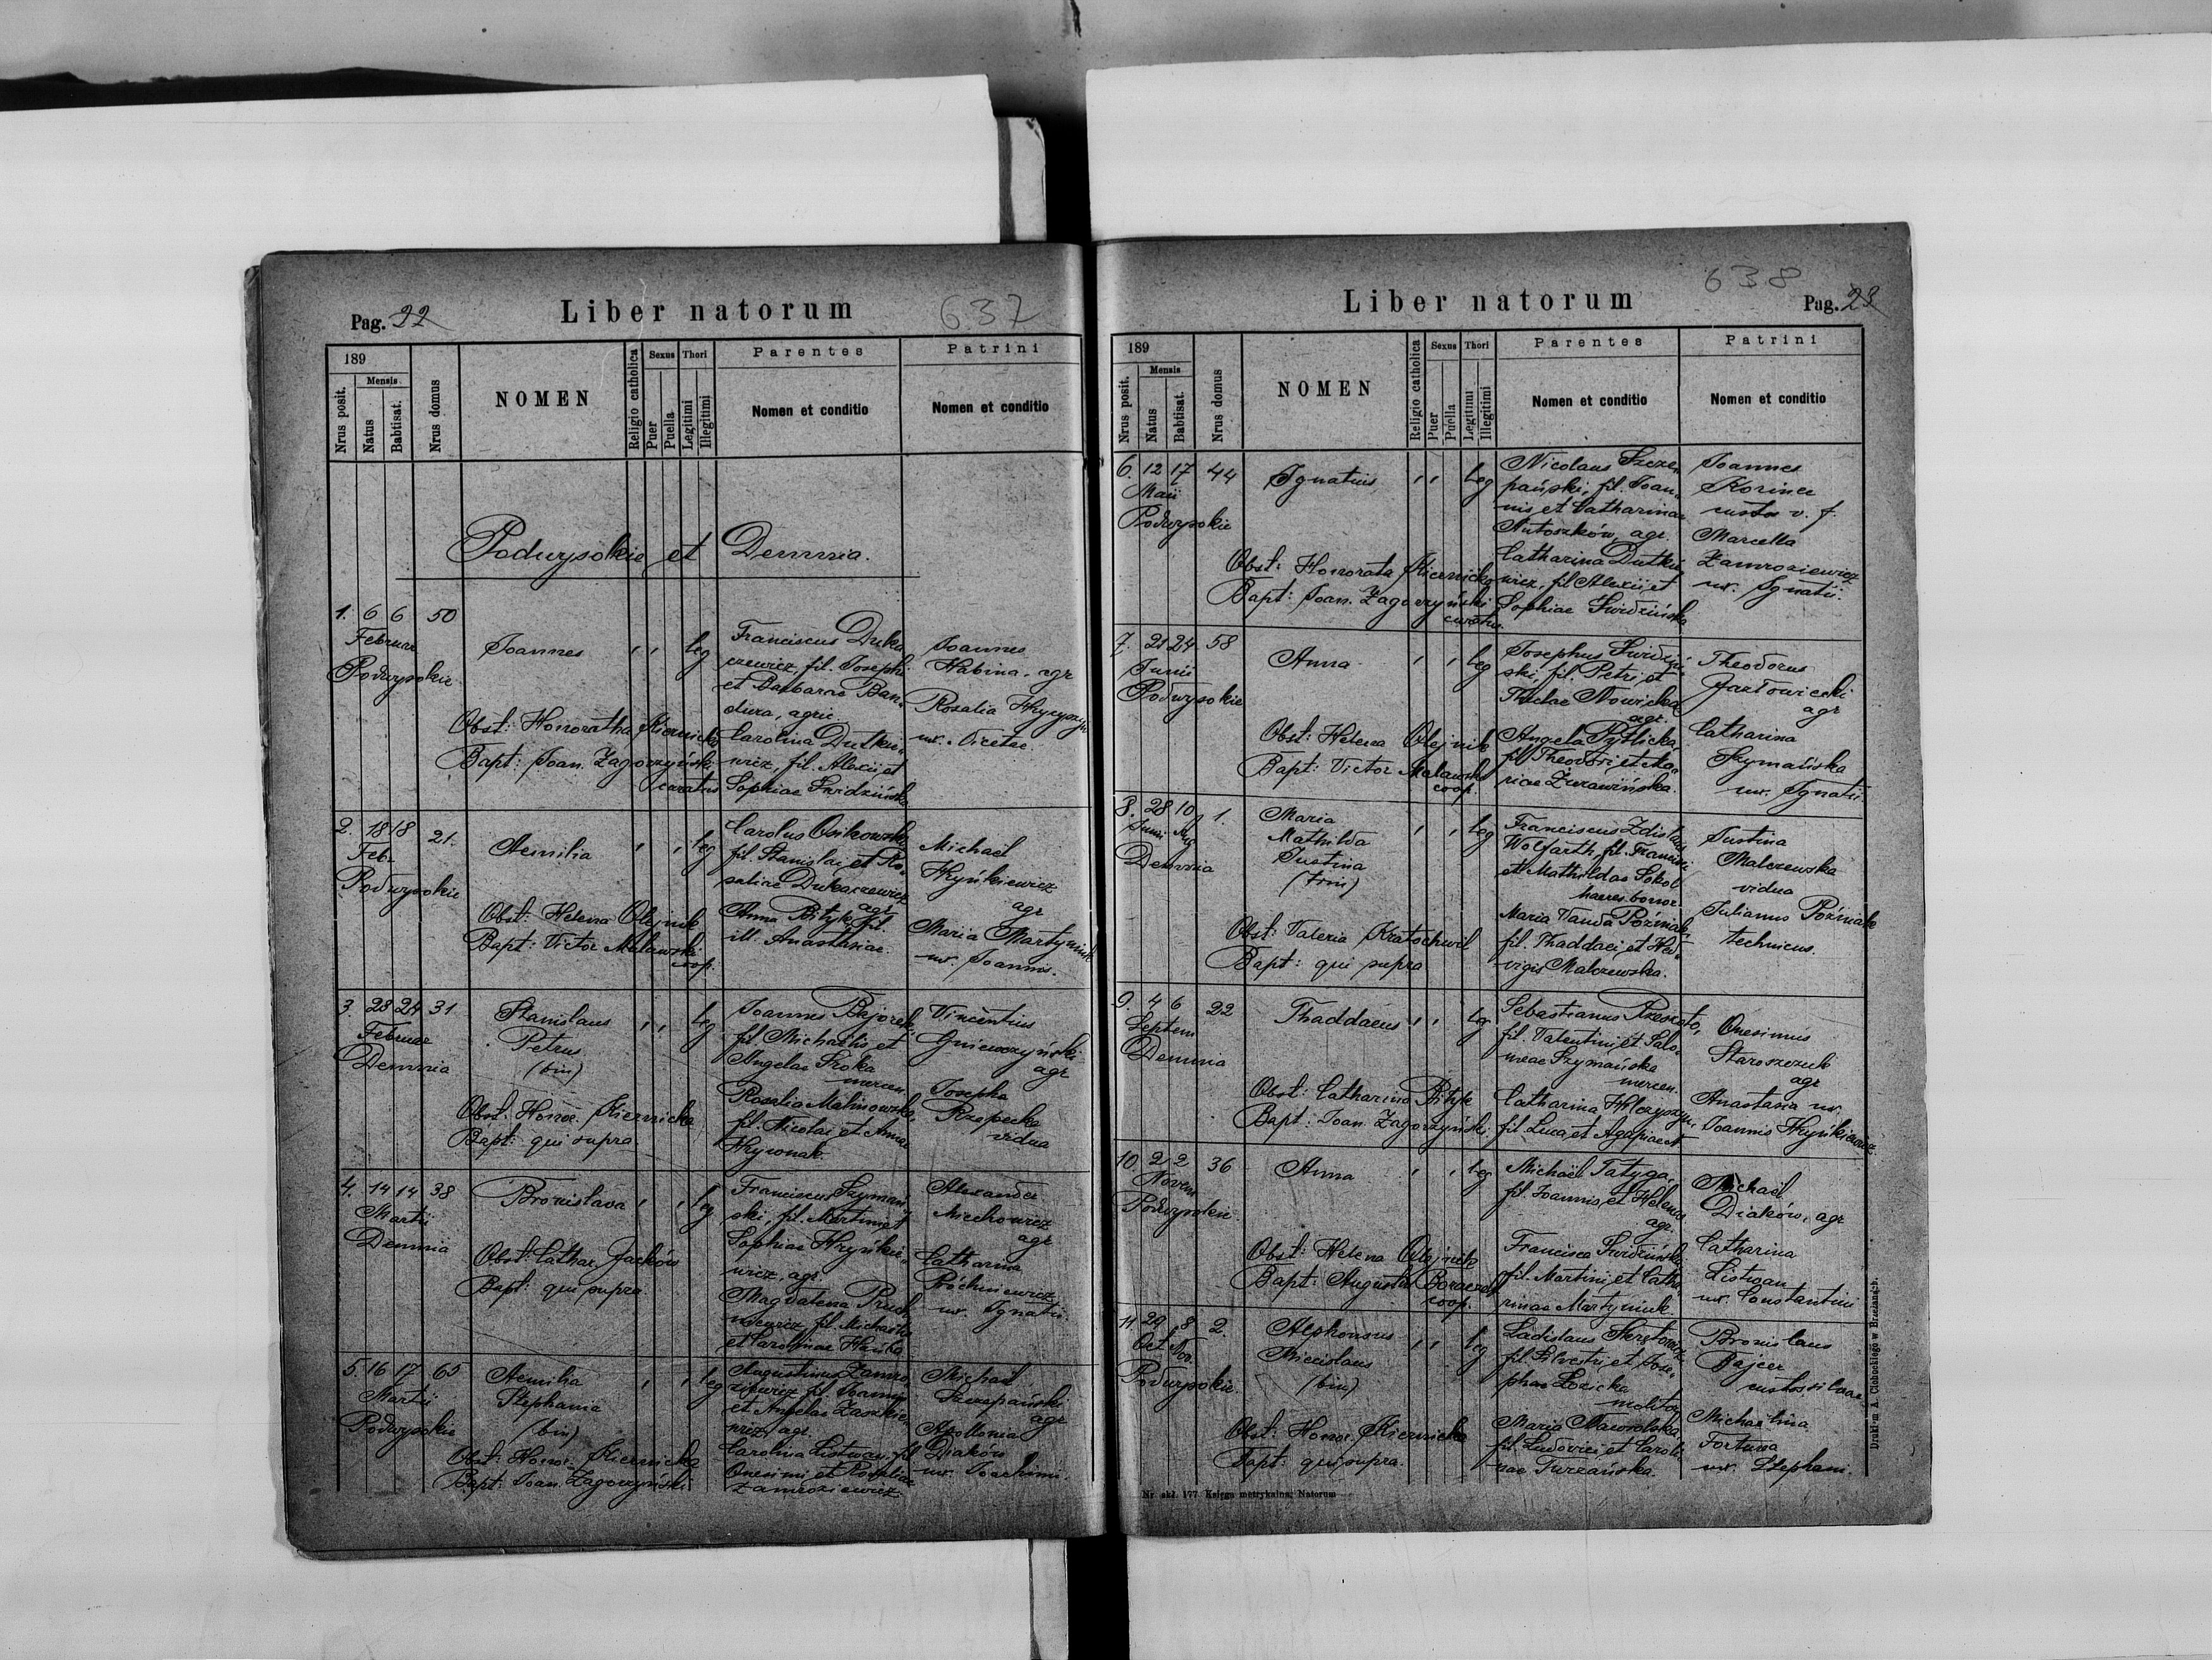 Pag. 22
Liber natorum
637
189
Nrus posit.
Mensis
Natus
Babtisat.
Nrus domus
NOMEN
Religio catholica
Sexus
Puer
Puella
Thori
Legitimi
Illegitimi
Parentes
Nomen et conditio
Patrini
Nomen et conditio
Podwysokie et Demnia.
1. 6 6 50
Februar
Podwysokie
Joannes
leg
Obst: Honoratha Kiernicka
Bapt: Joan. Zagorzyński
curatus
Franciscus Duka
czewicz, fil. Josephi
et Barbarae Ban„
dura, agric.
Carolina Dutkie„
wicz, fil. Alexii et
Sophiae Swidzińska
Joannes
Habina, agr
Rosalia Hrycyszyn
ux. Nicetae.
2. 18 18 21.
Feb.
Podwysokie
Aemilia
leg
Obst: Helena Olejnik
Bapt: Victor Malawski
coop.
Carolus Osikowski
fil. Stanislai et Ro„
saliae Dukaczewicz
agr
Anna Bityk, fil.
ill. Anastasiae.
Michael
Hryńkiewicz
agr
Maria Martyniuk
ux. Joannis.
3. 23 24 31
Februar
Demnia
Stanislaus
Petrus
(bin)
leg
Obst: Honor. Kiernicka
Bapt: qui supra
Joannes Bajorek
fil. Michaelis et
Angelae Sroka
mercen.
Rosalia Malinowska,
fil. Nicolai et Annae
Hrywnak.
Vincentius
Gniewczyński
agr
Josepha
Rzepecka
vidua
4. 14 14 38
Martii
Demnia
Bronislava
leg
Obst: Cathar. Jacków
Bapt: qui supra
Franciscus Szymań„
ski, fil. Martini et
Sophiae Hryńkie„
wicz, agr.
Magdalena Pruch
niewicz, fil. Michaelis
et Carolinae
Alexander
Miechowicz
agr
Catharina
Próchniewicz
ux. Ignatii.
5. 16 17 65
Martii
Podwysokie
Aemilia
Stephania
(bin)
leg
Obst: Honor. Kiernicka
Bapt: Joan. Zagorzyński
Augustinus Zamro„
ziewicz, fil. Joannis
et Angelae Zaszkie„
wicz, agr.
Carolina Listwan, fil
Onesimi et Rosaliae
Zamroziewicz
Michael
Szczepański
agr
Apollonia
Diaków
ux. Joachimi.
Liber natorum
638
Pag. 23
189
Nrus posit.
Mensis
Natus
Babtisat.
Nrus domus
NOMEN
Religio catholica
Sexus
Puer
Puella
Thori
Legitimi
Illegitimi
Parentes
Nomen et conditio
Patrini
Nomen et conditio
6. 12 17 44
Maii
Podwysokie
Ignatius
leg
Obst: Honorata Kiernicka
Bapt: Joan. Zagorzyński
curatus.
Nicolaus Szcze„
pański, fil. Joan„
nis et Catharinae
Antoszków, agr.
Catharina Dutkie
wicz, fil Alexii et
Sophiae Swidzińska
Joannes
Korinec
custos v. f.
Marcella
Zamroziewicz
ux. Ignatii.
7. 21 24 58
Junii
Podwysokie
Anna
leg
Obst: Helena Olejnik
Bapt: Victor Malawski
coop.
Josephus Swidziń„
ski, fil. Petri et
Theclae Nowicka
agr.
Angela Pytlicka,
fil Theodori et Ma„
riae Żurawińska.
Theodorus
Jazłowiecki
agr
Catharina
Szymańska
ux. Ignatii
8. 28 10 1.
Junii Aug
Demnia
Maria
Mathilda
Justina
(trin)
leg
Obst: Valeria Kratochwil
Bapt: qui supra
Franciscus Zdislaus
Wolfarth, fil. Francisci
et Mathildae Sokol
haeres. bonor.
Maria Vanda Poźniak,
fil. Thaddaei et Hed„
vigis Malczewska.
Justina
Malczewska
vidua
Julianus Poźniak
technicus.
9. 4 6 22
Septem
Demnia
Thaddaeus
leg
Obst: Catharina Bityk
Bapt: Joan. Zagorzyński
Sebastianus Rzeszoto,
fil. Valentini et Salo„
meae Szymańska
mercen.
Catharina Hrlczyszyn,
fil. Lucae et Agapiae N.
Onesimus
Staroszczuk
agr
Anastasia ux.
Joannis Hryńkiewicz
10. 2 2 36
Novem
Podwysokie
Anna
leg
Obst: Helena Olejnik
Bapt: Augustin
coop.
Michael Tatyga,
fil. Joannis et Helenae
agr.
Francisca Swidzińska
fil. Martini et Catha„
rinae Martyniuk.
Michael
Diaków, agr
Catharina
Listwan
ux. Constantini
11. 29 8 2.
Oct Nov.
Podwysokie.
Alphonsus
Miecislaus
(bin)
leg
Obst: Honor. Kiernicka
Bapt: qui supra.
Ladislaus
fil. Silvestri et Jose„
phae Łozicka
molitor
Maria Nawrolska,
fil. Ludovici et Caroli„
nae Turzańska.
Bronislaus
Bajcer
custos silvar.
Michaelina
Fortuna
ux. Stephani.
Nr. skł. 177 Księga metrykalna: Natorum
Drukiem A. Ciebockiego w Brzeżanach.